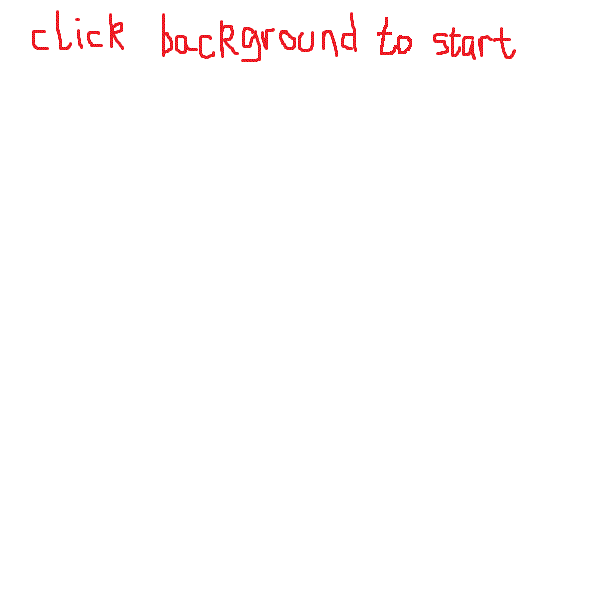 click background to start